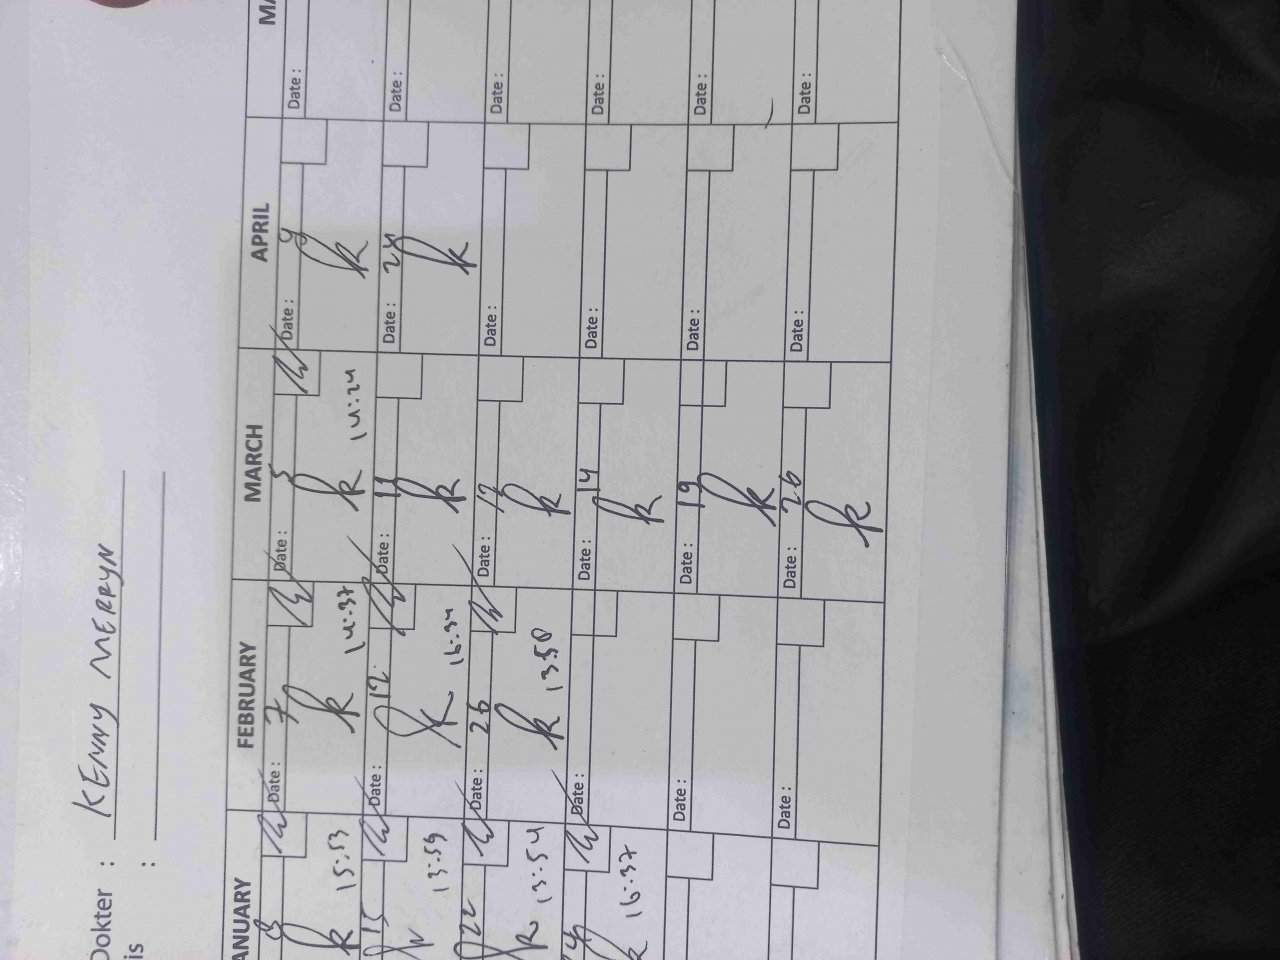 Dokter : KENNY MERRYN
is :
ANUARY FEBRUARY MARCH APRIL MA
8 Date : 7 Date : 5 Date : 9 Date :
15:53 14:37 14:24
15 Date : 12 Date : 11 Date : 24 Date :
13:59 16:34
22 Date : 26 Date : 12 Date : Date :
13:54 13:58
Date : Date : 14 Date : Date :
16:37
Date : Date : 19 Date : Date :
Date : Date : 26 Date : Date :